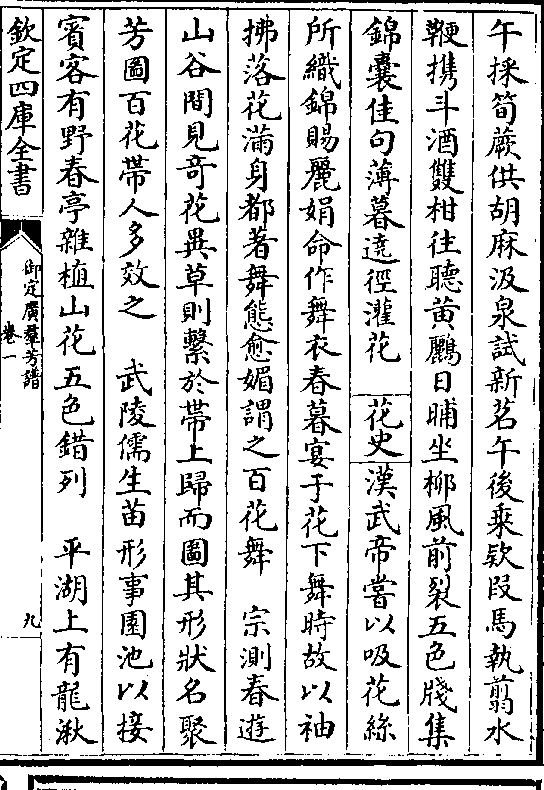 午採筍蕨供胡麻汲泉試新茗午後乘欵段馬執翦水
鞭攜斗酒雙柑往聽黄鸝日晡坐柳風前裂五色牋集
錦囊佳句薄暮遶徑灌花 花史漢武帝嘗以吸花絲
所織錦賜麗娟命作舞衣春暮宴于花下舞時故以袖
拂落花滿身都著舞態愈媚謂之百花舞 宗測春遊
山谷間見奇花異草則繫於帶上歸而圖其形狀名聚
芳圖百花帶人多效之 武陵儒生苗彤事園池以接
賓客有野春亭雜植山花五色錯列 平湖上有龍湫
欽定四庫全書
御定廣羣芳譜
卷一
九